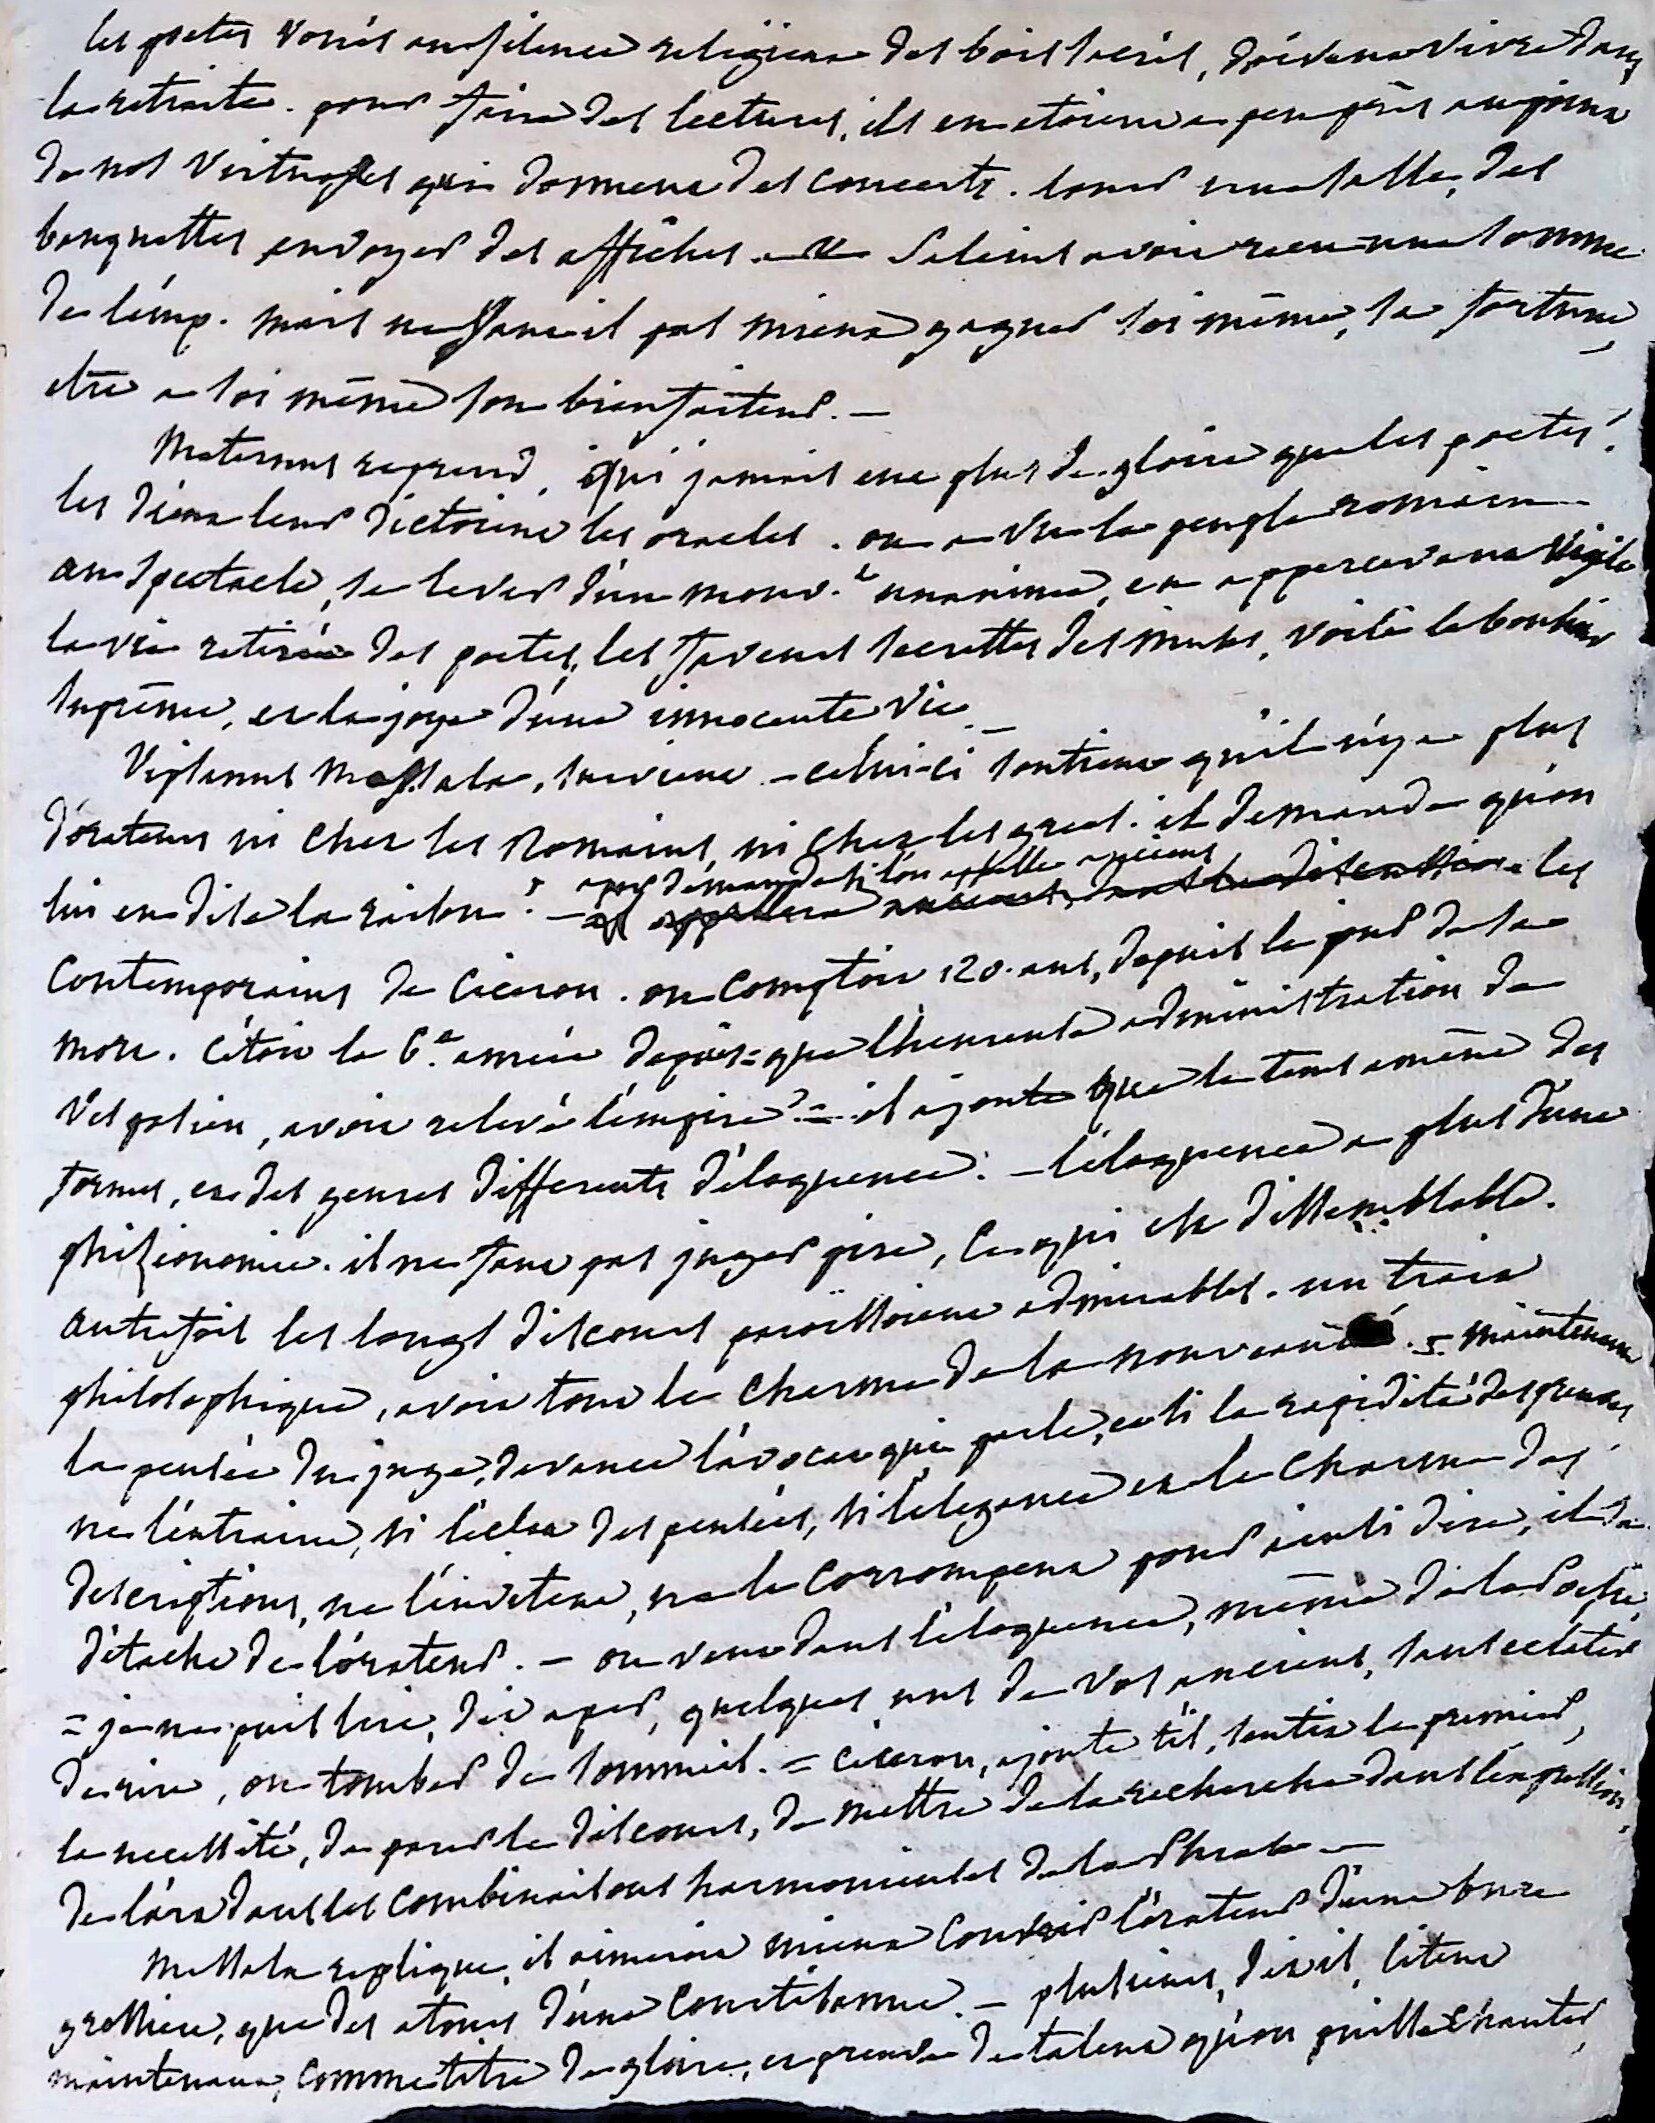 les poetes voués au silence religieux des bois sacrés, doivent vivre dans
la retraite. pour faire des lectures, ils en etoient a peu près au point
de nos virtuoses qui donnent des concerts. louer une salle, des
banquettes envoyer des affiches. — Saleius avoit recu une somme
de l'emp. mais ne vaut il pas mieux gagner soi même, sa fortune,
etre a soi même son bienfaiteur. —
Maternus reprend, qui jamais eut plus de gloire que les poetes!
les dieux leur dictoient les oracles. on a vu le peuple romain
au spectacle, se lever d'un mouv.t unanime, en appercevant Virgile
la vie retirée des poetes, les faveurs secrettes des muses, voilà le bonheur
supréme, et la joye d'une innocente vie —
Vipsanus Messala, survient — celui-ci soutient qu'il n'y a plus
d'orateurs ni chez les Romains, ni chez les grecs. il demande qu'on
lui en dise la raison? — aper demande si l'on appelle anciens les
contemporains de Ciceron. on comptoit 120. ans, depuis le jour de sa
mort. c'étoit la 6.e année depuis = que l'heureuse administration de
Vespasien, avoit relevé l'empire = il ajoute que le tems amène des
formes, et des genres differents d'éloquence. — l'éloquence a plus d'une
phisionomie. il ne faut pas juger pire, ce qui est dissemblable.
autrefois les longs discours paroissoient admirables. un trait
philosophique, avoit tout le charme de la nouveauté. maintenant
la pensée du juge, devance l'avocat qui parle, et si la rapidité des preuves
ne l'entraine, si l'éclat des pensées, si l'elegance et le charme des
descriptions, ne l'invitent, ne le corrompent pour ainsi dire, il se
détache de l'orateur. — on veut dans l'éloquence, même de la Poesie
= je ne puis lire, dit aper, quelques uns de vos anciens, sans eclater
de rire, ou tomber de sommeil. = ciceron, ajoute t'il, sentit le premier,
la necessité, de parer le discours, de mettre de la recherche dans l'expression,
de l'art dans les combinaisons harmonieuses de la Phrase —
Messala replique, il aimeroit mieux couvrir l'orateur d'une bure
grossiere, que des atours d'une courtisanne. — plusieurs, dit il, citent
maintenant, comme titre de gloire, et preuve de talent qu'on puisse chanter,